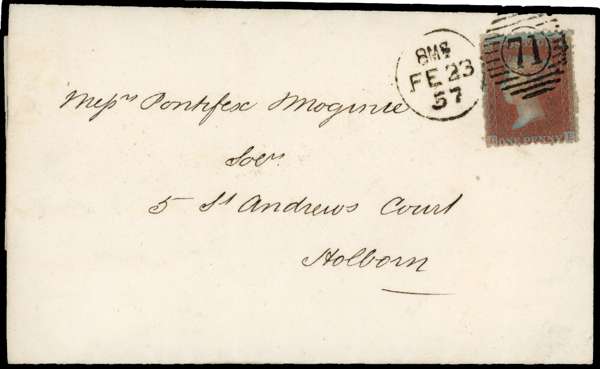 8MG
FE 23
57
71
ONE PENNY
Messrs Pontifex Moginie
Solrs
5 St Andrews Court
Holborn